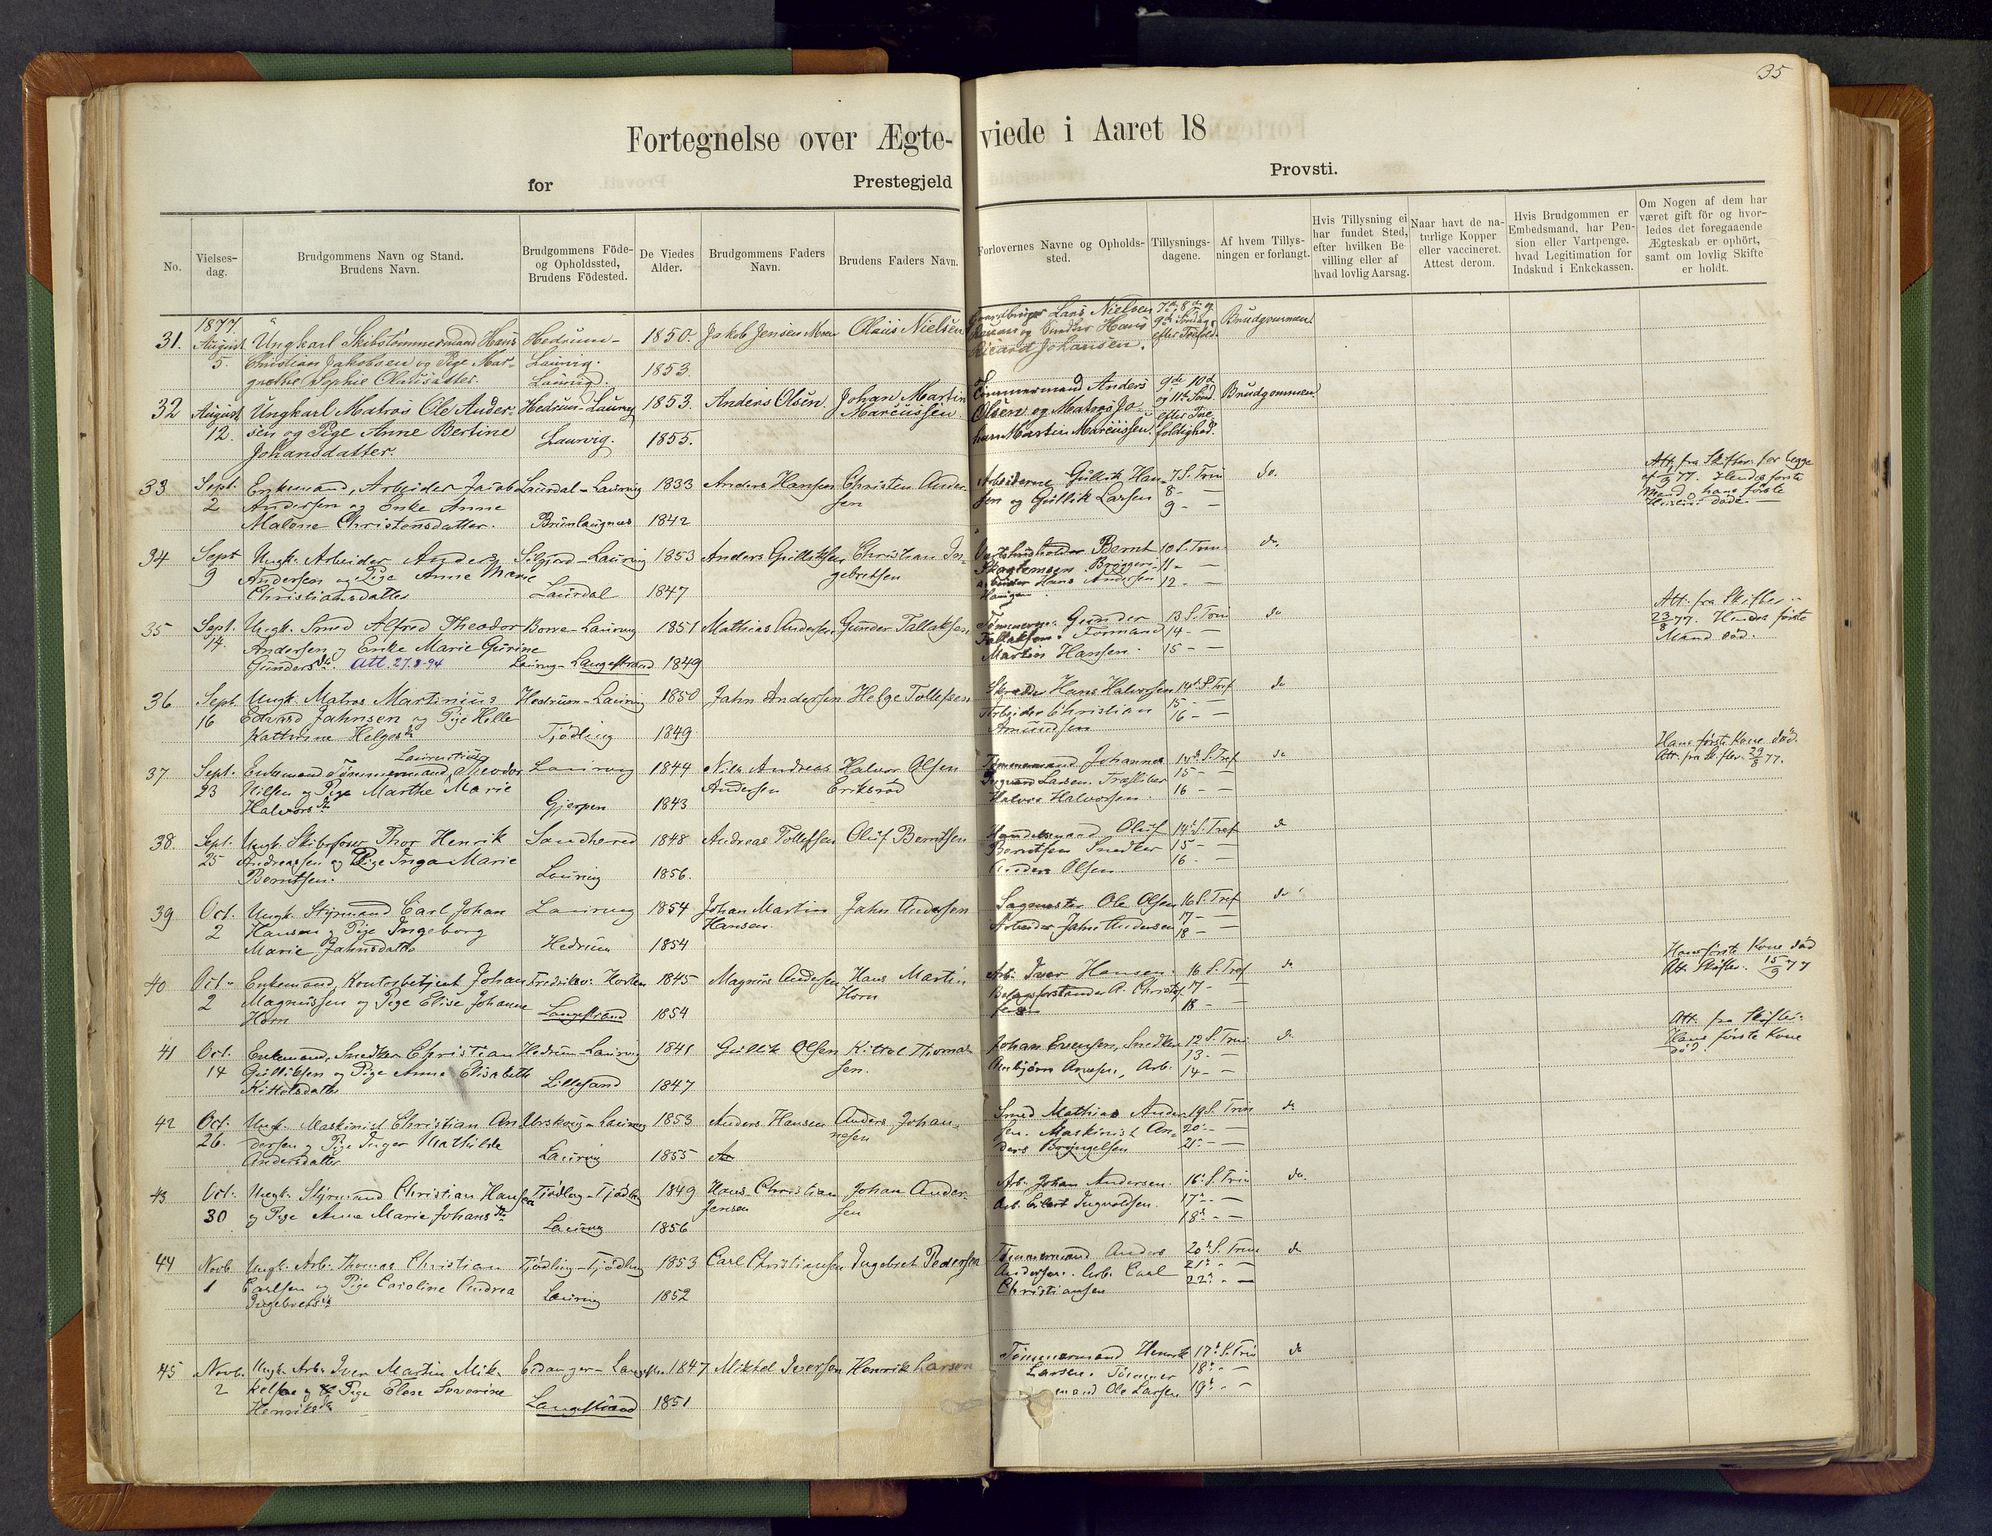 35
Fortegnelse over Ægte-viede i Aaret 18
for Prestegjeld Provsti.
No.
Vielses-
dag.
Brudgommens Navn og Stand.
Brudens Navn.
Brudgommens Föde-
og Opholdssted,
Brudens Födested.
De Viedes
Alder.
Brudgommens Faders
Navn.
Brudens Faders Navn.
Forlovernes Navne og Opholds-
sted.
Tillysnings-
dagene.
Af hvem Tillys-
ningen er forlangt.
Hvis Tillysning ei
har fundet Sted,
efter hvilken Be-
villing eller af
hvad lovlig Aarsag.
Naar havt de na-
terlige Kopper
eller vaccineret.
Attest derom.
Hvis Brudgommen er
Embedsmand, har Pen-
sion eller Vartpenge.
hvad Legitimation for
Indskud i Enkekassen.
Om Nogen af dem har
været gift för og hvor-
ledes det foregaaende
Ægteskab er ophört,
samt om lovlig Skifte
er holdt.
1877.
31. August Ungkarl Skibstømmermand Hans Hedrum- 1850. Jakob Jensen Moen Olaus Nielsen Lars Nielsen 7de 8de og Brudgommen
5. Christian Jakobsen og Pige Mar- Laurvig. og Snedker Hans 9de Søndag
grethe Sophie Olausdatter. Laurvig. 1853. Ricard Johansen. efter Trefold.
32 August Ungkarl Matros Ole Ander- Hedrum-Laurvig 1853. Anders Olsen. Johan Martin Tømmermand Anders 9de 10de Brudgommen
12. sen og Pige Anne Bertine Marcussen. Olsen og Matros Jo- og 11te Sønd.
Johansdatter. Laurvig. 1855. han Martin Marcussen. efter Tre-
foldighed.
33 Sept. Enkemand, Arbeider Jacob Laurdal-Laurvig 1833 Anders Hansen Christen Ander- Arbeiderne Gullik Han- 7 S. Trin do. Att. fra Skifter. for begge
2 Andersen og Enke Anne sen sen og Gullik Larsen 8 - af 77. Hendes første
Malene Christensdatter. Brunlaugnæs 1842 9 - - Mand og hans første
Hustru døde -
34 Sept Ungk. Arbeider Anders Siljord-Laurvig 1853 Anders Gulliksen Christian In- Bernt 10 S. Trin. do.
9 Andersen og Pige Anne Marie gebretsen Skagtemsen Bryggeri- 11 -
Christiansdatter Laurdal 1847 arbeider Hans Andersen 12 -
Haugen
35 Sept. Ungk. Smed Alfred Theodor Borre-Laurvig 1851 Mathias Andersen Gunder Tallaksen Tømmerm. Gunder 13 S. Trin do Att. fra Skifter
14. Andersen og Enke Marie Gurine Tallaksen. Formand 14 - - 23/8 77. Hendes første
Gundersdtr. Att. 27.8-94 Laurvig-Langestrand 1849 Martin Hansen. 15 - - Mand død.
36 Sept. Ungk. Matros Martinius Hedrum-Laurvig 1850 Jahn Andersen Helge Tollefsen Skrædder Hans Halvorsen 14de S. Tref do
16 Edvard Jahnsen og Pige Helle Arbeider Christian 15 - -
Kathrine Helgesdtr Tjødling 1849 Amundsen 16 - -
Laurentius
37 Sept. Enkemand Tømmermand Theodor Laurvig 1844 Nils Andreas Halvor Olsen Tømmermand Johannes 14de S. Tref do Hans første Kone død.
23 Nilsen og Pige Marthe Marie Andersen Eriksrød Ingvard Larsen. Træsliber 15 - - Att. fra Skifter. 29/8 77.
Halvorsdtr Gjerpen 1843 Halvor Halvorsen. 16 - -
38 Sept. Ungk. Skibsfører Thor Henrik Sandherred 1848 Andreas Tollefsen Oluf Berntsen Handelsmand Oluf 14de S. Tref do
25 Andreassen og Pige Inga Marie Berntsen Snedker 15 - -
Berntsen. Laurvig 1856. Anders Olsen 16 -
39 Oct. Ungk. Styrmand Carl Johan Laurvig 1854 Johan Martin Jahn Andersen Sagmester Ole Olsen 16 S. Tref do
2 Hansen og Pige Ingeborg Hansen. Arbeider Jahn Andersen 17 - -
Marie Jahnsdatter Hedrum 1854 18 - -
40 Oct. Enkemand, Kontorbetjent Johan Fredriksv: Horten 1845 Magnus Andersen Hans Martin Arb. Iver Hansen. 16 S. Tref do Hans første Kone død
2 Magnussen og Pige Elise Johanne Horn Besøgsforstander A. Christof 17 - - Att. Skifter. 15/9 77
Horn Langestrand 1854 fersen 18 -
41 Oct. Enkemand, Snedker Christian Hedrum-Laurvig 1841 Gullik Olsen Kittel Thomas- Johan Evensen, Snedker 12 S. Trin do Att. fra Skifter.
14 Gulliksen og Pige Anne Elisabeth sen. Anbjørn Arnesen, Arb. 13 - - Hans første Kone
Kittelsdatter Lillesand 1847 14 - - død.
42 Oct. Ungk. Maskinist Christian An Urskoug-Laurvig 1853 Anders Hansen Anders Johan- Smed Mathias Ander 19 S. Trin do
26. dersen og Pige Inger Mathilde nesen sen. Maskinist An- 20 - -
Andersdatter Laurvig 1855 ders Bryngelsen 21 - -
43 Oct. Ungk. Styrmand Christian Hansen Tjødling-Tjødling 1849 Hans Christian Johan Ander- Arb. Johan Andersen. 16 S. Trin do.
30 og Pige Anne Marie Johansdtr Jensen sen Arb. Eilert Ingvoldsen. 17 - -
Laurvig 1856 18 - -
44 Novb. Ungk. Arb. Thomas Christian Tjødling-Tjødling 1853 Carl Christiansen Ingebret Pedersen Tømmermand Anders 20de S. Trin do
1 Carlsen og Pige Caroline Andrea Andersen. Arb. Carl 21 - -
Ingebretsdtr Laurvig 1852 Christiansen 22 - -
45 Novb. Ungk. Arb. Iver Martin Mik- Eidanger-Langestr. 1847 Mikkel Iversen Henrik Larsen Tømmermand Henrik 17de S. Trin do
2 kelsen og Pige Elese Severine Larsen. Tømmer 18 - -
Henriksdtr Langestrand 1851 mand Ole Larsen 19 - -